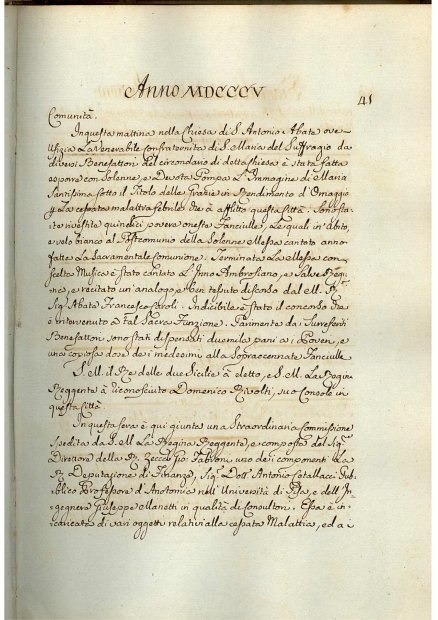 Anno MDCCCV
41
Comunità.
In questa mattina nella Chiesa di S. Antonio Abate ove
Ufizia La Venerabile Confraternita di S. Maria del Suffragio da
diversi Benefattori del circondario di detta Chiesa è stata fatta
esporre con Solenne, e Devota Pompa L'Immagine di Maria
Santissima sotto il Titolo delle Grazie in Rendimento d'Omaggio
La cessata malattia febrile che à afflitto questa Città. Sono sta-
te rivestite quindici povere oneste Fanciulle, Le quali in Abito,
e velo bianco al Postcomunio della Solenne Messa cantata anno
fatte La Sacramentale comunione. Terminata La Messa con
scelta Musica è stato cantato L'Inno Ambrosiano, e Salve Reg-
ine, e recitato un analogo, e ben tessuto discorso dal M. R.
Sig. Abate Francesco Paroli. Indicibile è stato il concorso che
è intervenuto a tal Sacra Funzione. Parimente da i Surreferiti
Benefattori sono stati dispensati duemila pani a i Poveri, e
una copiosa dose dei medesimi alla Sopraccennate Fanciulle
S. M. il Re delle due Sicilie à detto, e S. M. La Regina
Reggente à riconosciuto Domenico Rivolti, suo Console in
questa Città
In questa Sera è qui giunta una Straordinaria Commissione
spedita da S. M. La Regina Reggente, e composta del Sig.
Direttore della R. Zecca Gio Fabroni uno dei componenti La
R. Deputazione di Finanze, Sig. Dott. Antonio Catellacci Pub-
blico Professore d'Anotomia nell'Università di Pisa, e dell'In-
gegnere Giuseppe Manetti in qualità di Consultori. Essa è in-
caricata di vari oggetti relativi alla cessata Malattia, ed a i